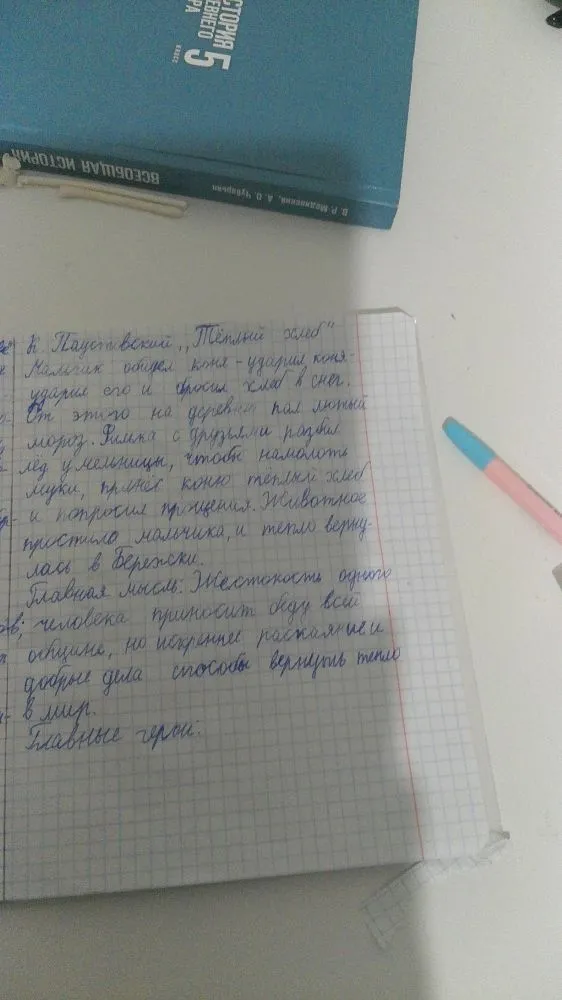 ИСТОРИЯ
ДРЕВНЕГО
МИРА
5
КЛАСС
ВСЕОБЩАЯ ИСТОРИЯ
В. Р. Мединский, А. О. Чубарьян
К. Паустовский „Тёплый хлеб"
Мальчик обидел коня - ударил коня-
ударил его и бросил хлеб в снег.
От этого на деревню пал лютый
мороз. Филька с друзьями разбил
лёд у мельницы, чтобы намолоть
муки, принёс коню тёплый хлеб
и попросил прощения. Животное
простило мальчика, и тепло верну-
лась в Бережки.
Главная мысль: Жестокость одного
человека приносит беду всей
общине, но искреннее раскаяние и
добрые дела способы вернуть тепло
в мир.
Главные герои: